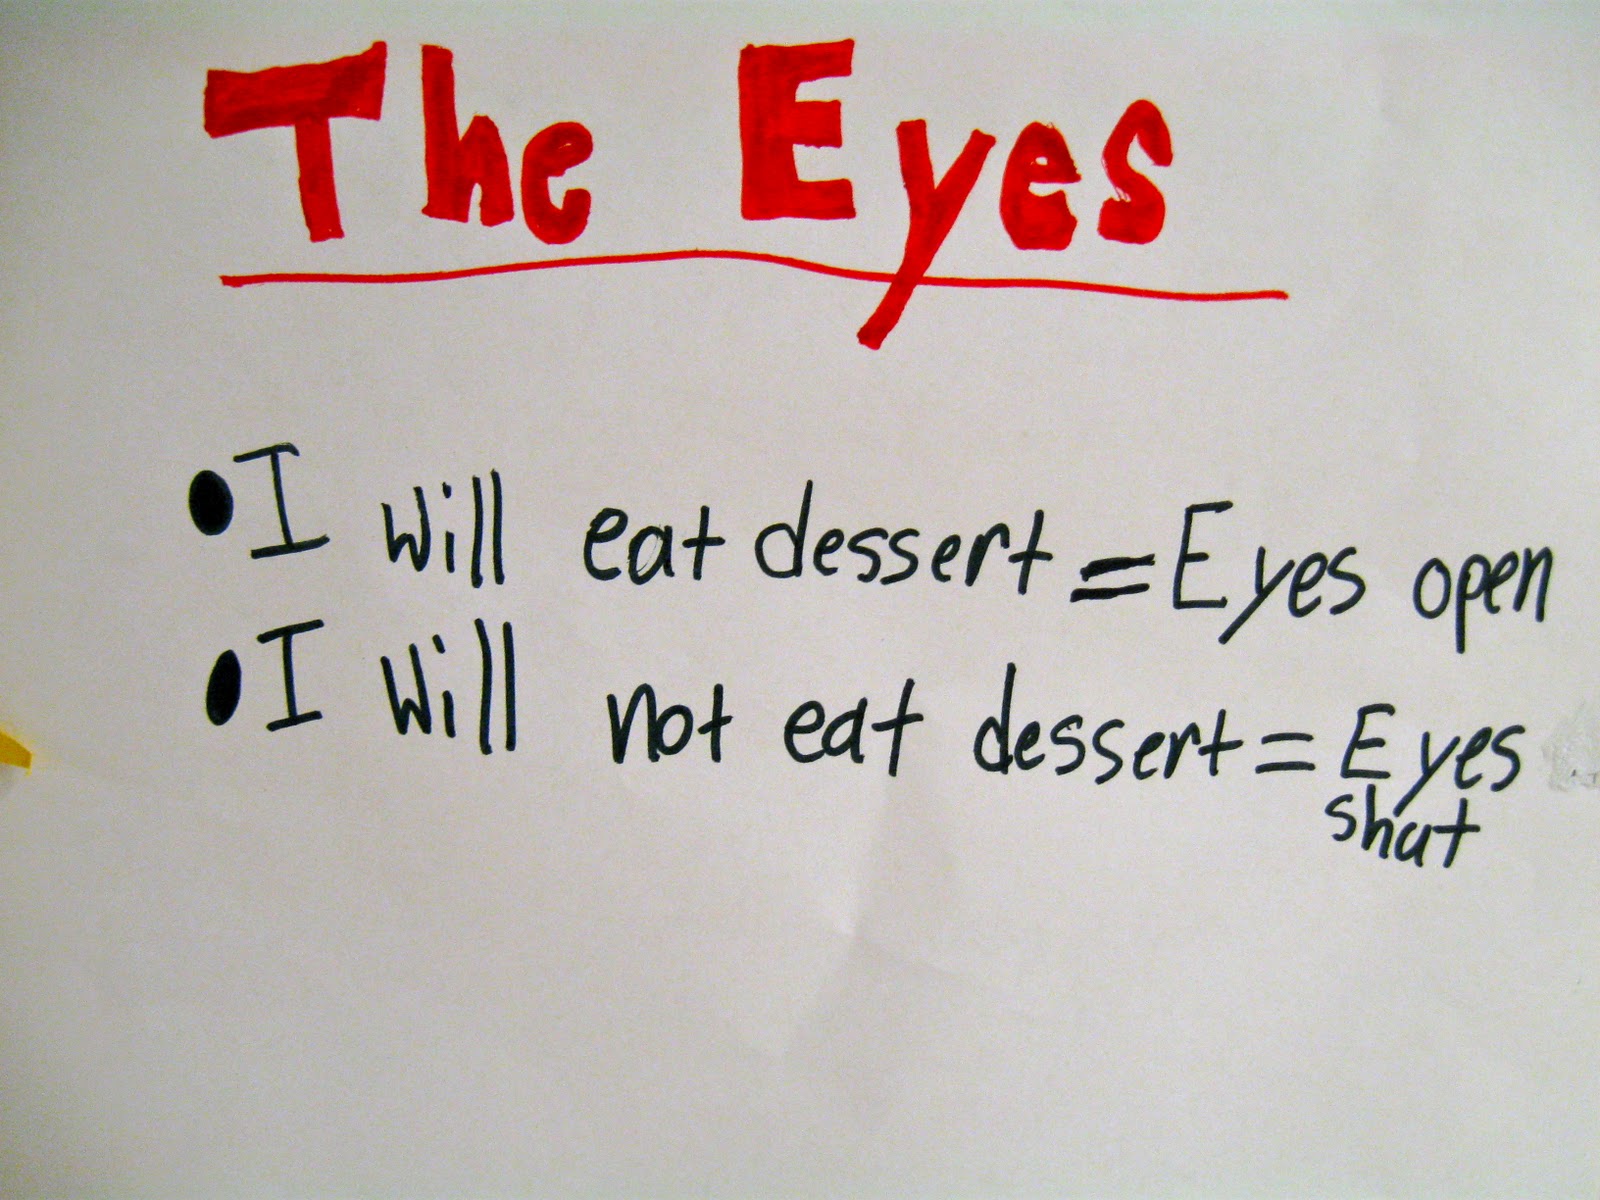 The Eyes
• I will eat dessert = Eyes open
• I will not eat dessert = Eyes
shut